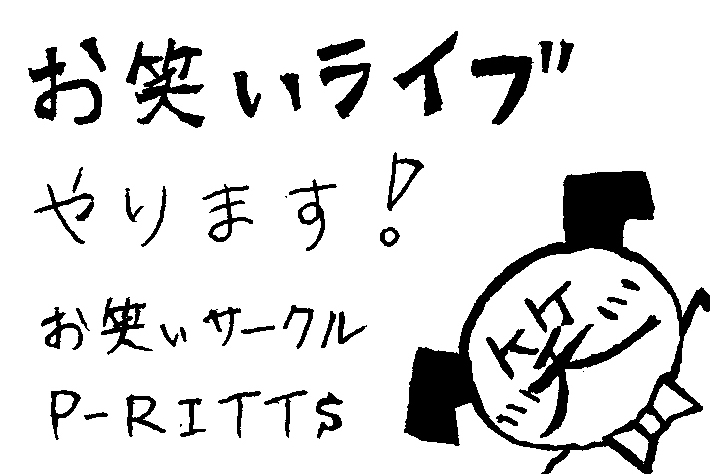 お笑いライブ
やります!
お笑いサークル
P-RITTS
笑